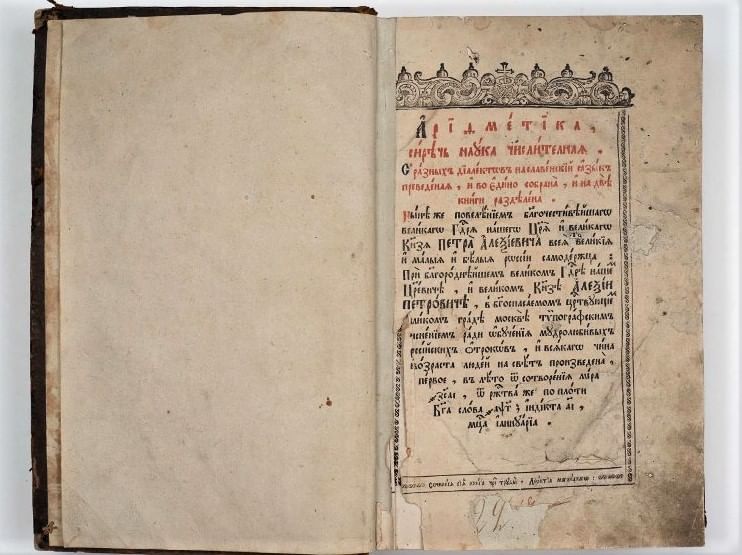 А҆рїѳме́тїка,
си́рѣчь наꙋка числи́телнаѧ.
С̾ ра́зныхъ дїале́ктовъ на славе́нскїй ꙗ҆зы́къ
преведе́наѧ, и҆ во є҆ди́но собрана̀, и҆ на двѣ̀
кни́ги раздѣле́на.
Ны́нѣ же повелѣ́нїемъ благочести́вѣйшагѡ
вели́кагѡ Гдⷭ҇рѧ на́шегѡ Цр҃ѧ̀ и҆ вели́кагѡ
Кн҃зѧ ПЕТРА̀ А҆ЛЕѮІ́ЕВИЧА всеѧ̀ вели́кїѧ
и҆ ма́лыѧ и҆ бѣ́лыѧ рѡссі́и самоде́ржца:
При благоро́днѣйшемъ вели́комъ Гдⷭ҇рѣ на́шемъ
Цр҃е́вичѣ, и҆ вели́комъ Кн҃зѣ А҆ЛЕѮІ́И
ПЕТРО́ВИЧѢ, в̾ бг҃оспаса́емомъ црⷭ҇твꙋющемъ
вели́комъ гра́дѣ москвѣ̀ тѷпогра́фскимъ
тисне́нїемъ ра́ди ѡ҆бꙋче́нїѧ мꙋдролюби́выхъ
рѡссі́йскихъ ѻ҆́трокѡвъ, и҆ всѧ́кагѡ чи́на
и҆ во́зраста люде́й на свѣ́тъ произведена̀,
пе́рвое, въ лѣ́то ѿ сотворе́нїѧ мі́ра
҂зса҃і, ѿ рⷤтва̀ же по пло́ти
Бг҃а сло́ва ҂аѱ҃г і҆нді́кта а҃і,
мцⷭ҇а і҆аннꙋа́рїа.
Сочини́сѧ сїѧ̀ кни́га чрⷥе трꙋды̀ Лео́нтїа магни́цкагѡ: